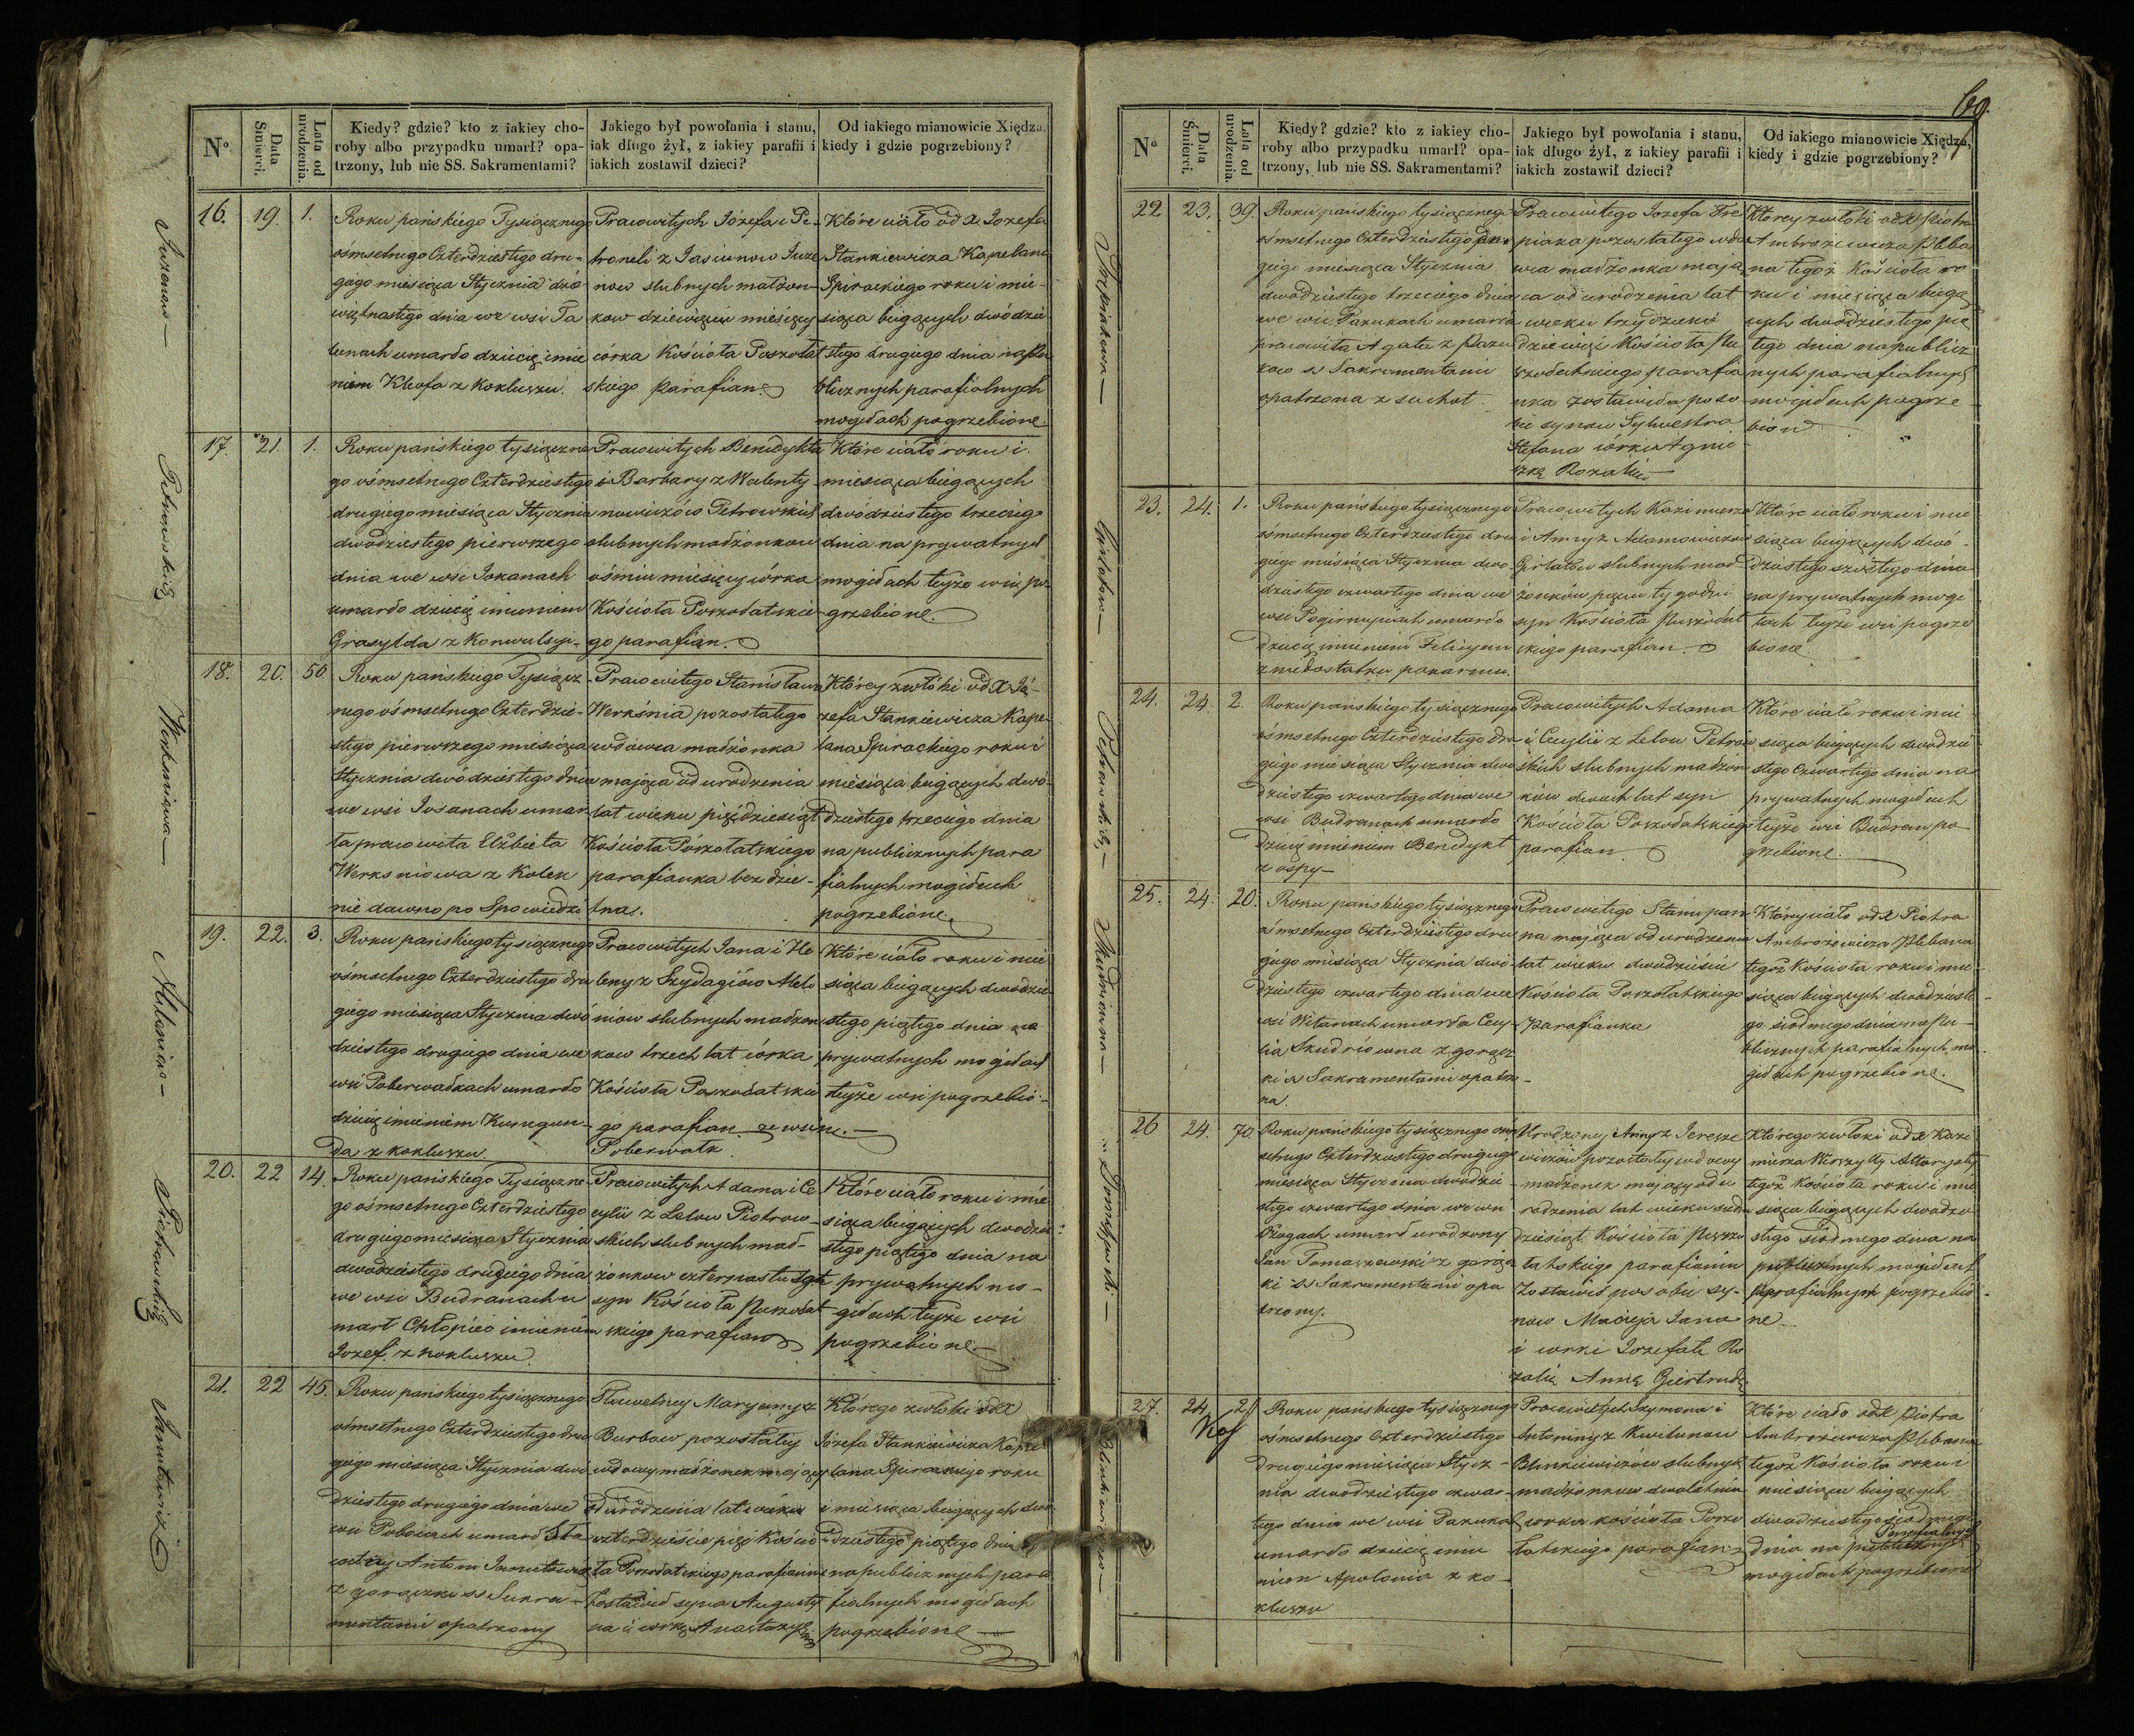 No
Data Śmierci.
Lata od urodzenia.
Kiedy? gdzie? kto z iakiey cho-
roby albo przypadku umarł? opa-
trzony, lub nie SS. Sakramentami?
Jakiego był powołania i stanu,
iak długo żył, z iakiey parafii i
iakich zostawił dzieci?
Od iakiego mianowicie Xiędza,
kiedy i gdzie pogrzebiony?
16. 19. 1.
Roku pańskiego Tysiącznego
ośmsetnego Czterdziestego dru-
giego miesiąca Stycznia dzie
więtnastego dnia we wsi
umarło dziecię imie
niem z Kokluszu.
Pracowitych Józefa i Pe-
troneli z
now slubnych małżon-
kow dziewięciu miesięcy
córka Kościoła Poszołat
skiego parafian.
Które ciało od X Jozefa
Stankiewicza Kapelana
Spirackiego roku i mie-
siąca biegących dwódzie
stego drugiego dnia na pu
blicznych parafialnych
mogiłach pogrzebione.
17. 21. 1.
Roku pańskiego tysiączne
go ośmsetnego Czterdziestego
drugiego miesiąca Stycznia
dwódziestego pierwszego
dnia we wsi Jokanach
umarło dziecię imieniem
Grasylda z Konwulsyi.
Pracowitych Benedykta
i Barbary z Walenty-
nowiczów Petrowskich
slubnych małżonkow
ośmiu miesięcy córka
Kościoła Poszołatskie-
go parafian.
Które ciało roku i
miesiąca biegących
dwódziestego trzeciego
dnia na prywatnych
mogiłach teyże wsi po
grzebione.
18. 20. 50
Roku pańskiego Tysiącz-
nego ośmsetnego Czterdzie-
stego pierwszego miesiąca
Stycznia dwódziestego dnia
we wsi umar
ła pracowita Elżbieta
Werksniowa z Kolek
nie dawno po Spowiedzi
Pracowitego Stanisława
Werkśnia pozostałego
wdowca małżonka
mająca od urodzenia
lat wieku pięćdziesiąt
Kościoła Poszołatskiego
parafianka bez dzie-
tna.
Którey zwłoki od X Jó-
zefa Stankiewicza Kape-
lana Spirackiego roku i
miesiąca biegących dwó-
dziestego trzeciego dnia
na publicznych para
fialnych mogiłach
pogrzebione.
19. 22. 3.
Roku pańskiego tysiącznego
ośmsetnego Czterdziestego dru
giego miesiąca Stycznia dwó
dziestego drugiego dnia we
wsi Poberwałkach umarło
dziecię imieniem Kunegun-
da z kokluszu.
Pracowitych Jana i He
leny z
slubnych małżon
kow trzech lat córka
Kościoła Poszołatskie
go parafian. ze wsi
Poberwałk
Które ciało roku i mie
siąca biegących dwódzie
stego piątego dnia na
prywatnych mogiłach
teyże wsi pogrzebio-
ne.
20. 22 14.
Roku pańskiego Tysiączne-
go ośmsetnego Czterdziestego
drugiego miesiąca Stycznia
dwódziestego drugiego dnia
we wsi Budranach u
marł Chłopiec imieniem
Jozef z kokluszu.
Pracowitych Adama i Ce
cylii z Lelow Piotrow-
skich slubnych mał-
żonkow czternastu lat
syn Kościoła Puszołat
skiego parafian
Które ciało roku i mie
siąca biegących dwódzie
stego piątego dnia na
prywatnych mo-
giłach teyże wsi
pogrzebione.
21. 22 45.
Roku pańskiego tysiącznego
ośmsetnego Czterdziestego dru
giego miesiąca Stycznia dwó
dziestego drugiego dnia we
wsi umarł Sła
wetny Antoni
z gorączki ss Sakra-
mentami opatrzony
Sławetney Maryanny z
Burbow pozostałey
wdowy małżonek mający
od urodzenia lat wieku
czterdzieście pięć Kościo
ła Poszołatskiego parafianin
zostawił syna Augusty
na i corkę Anastazyę
Którego zwłoki od X
Józefa Stankiewicza Kape
lana Spirackiego roku
i miesiąca biegących dwó
dziestego piątego dnia
na publicznych para
fialnych mogiłach
pogrzebione
Petrowskich
Werksniowa
Piotrowskich
69.
No
Data Śmierci.
Lata od urodzenia.
Kiedy? gdzie? kto z iakiey cho-
roby albo przypadku umarł? opa-
trzony, lub nie SS. Sakramentami?
Jakiego był powołania i stanu,
iak długo żył, z iakiey parafii i
iakich zostawił dzieci?
Od iakiego mianowicie Xiędza,
kiedy i gdzie pogrzebiony?
22 23. 39.
Roku pańskiego tysiącznego
ośmsetnego Czterdziestego dru
giego miesiąca Stycznia
dwódziestego trzeciego dnia
we wsi Pazukach umarła
pracowita Agata z Pazu
kow ss Sakramentami
opatrzona z suchot.
Pracowitego Jozefa
pozostałego wdo
wca małżonka mają
ca od urodzenia lat
wieku trzydzieści
dziewięć Kościoła Pu
szołatskiego parafia
nka zostawiła po so
bie synow Sylwestra
Stefana córki Agnie
szkę Rozalią
Którey zwłoki od X Piotra
Ambrożewicza Pleba
na tegoż Kościoła ro
ku i miesiąca biegą
cych dwódziestego pią
tego dnia na publicz
nych parafialnych
mogiłach pogrze
bione
23. 24. 1.
Roku pańskiego tysiącznego
ośmsetnego Czterdziestego dru
giego miesiąca Stycznia dwó
dziestego czwartego dnia we
wsi umarło
dziecię imieniem Felicyan
z niedostatku pokarmu.
Pracowitych Kazimierza
i Anny z Adamowiczow
slubnych mał
żonków pięciu tygodni
syn Kościoła Puszołat
skiego parafian.
Które ciało roku i mie
siąca biegących dwó-
dziestego szóstego dnia
na prywatnych mogi
łach teyże wsi pogrze
bione.
24. 24. 2.
Roku pańskiego tysiącznego
ośmsetnego Czterdziestego dru
giego miesiąca Stycznia dwó
dziestego czwartego dnia we
wsi Budranach umarło
dziecię imieniem Benedykt
z ospy
Pracowitych Adama
i Cecylii z Lelow Petrow
skich slubnych małżon
ków dwóch lat syn
Kościoła Poszołatskiego
parafian.
Które ciało roku i mie
siąca biegących dwódzie
stego Czwartego dnia na
prywatnych mogiłach
teyże wsi Budran po
grzebione.
25. 24. 20.
Roku pańskiego tysiącznego
ośmsetnego Czterdziestego dru
giego miesiąca Stycznia dwó-
dziestego czwartego dnia we
wsi Witanach umarła Cecy-
lia z gorącz
ki ss Sakramentami opatrzo-
na.
Pracowitego Stanu pan
na mająca od urodzenia
lat wieku dwódzieście
Kościoła Poszołatskiego
Parafianka
Którey ciało od X Piotra
Ambrożewicza Plebana
tegoż Kościoła roku i mie
siąca biegących dwódzieste-
go siodmego dnia na pu-
blicznych parafialnych mo
giłach pogrzebione.
26 24. 70
Roku pańskiego tysiącznego ośm
setnego Czterdziestego drugiego
miesiąca Stycznia dwódzie
stego czwartego dnia we wsi
umarł urodzony
Jan Tomaszewski z gorącz
ki ss Sakramentami opa
trzony.
Urodzoney Anny z
pozostałey wdowy
małżonek mający od u
rodzenia lat wieku siedm
dziesiąt Kościoła Puszo
łatskiego parafianin
Zostawił po sobie sy-
now Macieja Jana
i corki Jozefatę Ro
zalię Annę Giertrudę
Którego zwłoki od X Kazi
mierza Altarysty
tegoż Kościoła roku i mie
siąca biegących dwódzie
stego siódmego dnia na
publicznych mogiłach
parafialnych pogrzebio-
ne.
27. 24. 2
Roku pańskiego tysiącznego
ośmsetnego Czterdziestego
drugiego miesiąca Stycz-
nia dwódziestego czwar-
tego dnia we wsi Pazukach
umarło dziecię imie
niem Apolonia z ko-
kluszu
Pracowitych Szymona i
Antoniny z Kwitunow
Blinkiewiczów slubnych
małżonkow dwoletnia
corka kościoła Poszo
łatskiego parafian
Które ciało od X Piotra
Ambrożewicza Plebana
tegoż Kościoła roku i
miesiąca biegących
dwódziestego siodmego
dnia na
mogiłach pogrzebione
Petrowskich